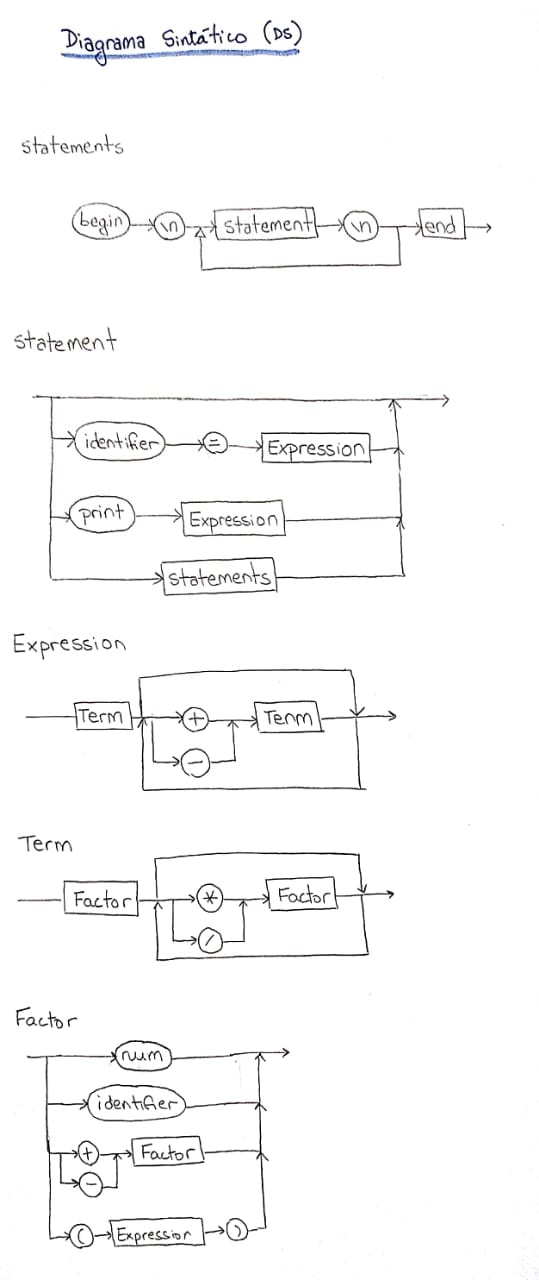 Diagrama Sintático (DS)
statements
begin \n statement \n end
statement
identifier = Expression
print Expression
statements
Expression
Term + Term
-
Term
Factor * Factor
/
Factor
num
identifier
+ Factor
-
( Expression )